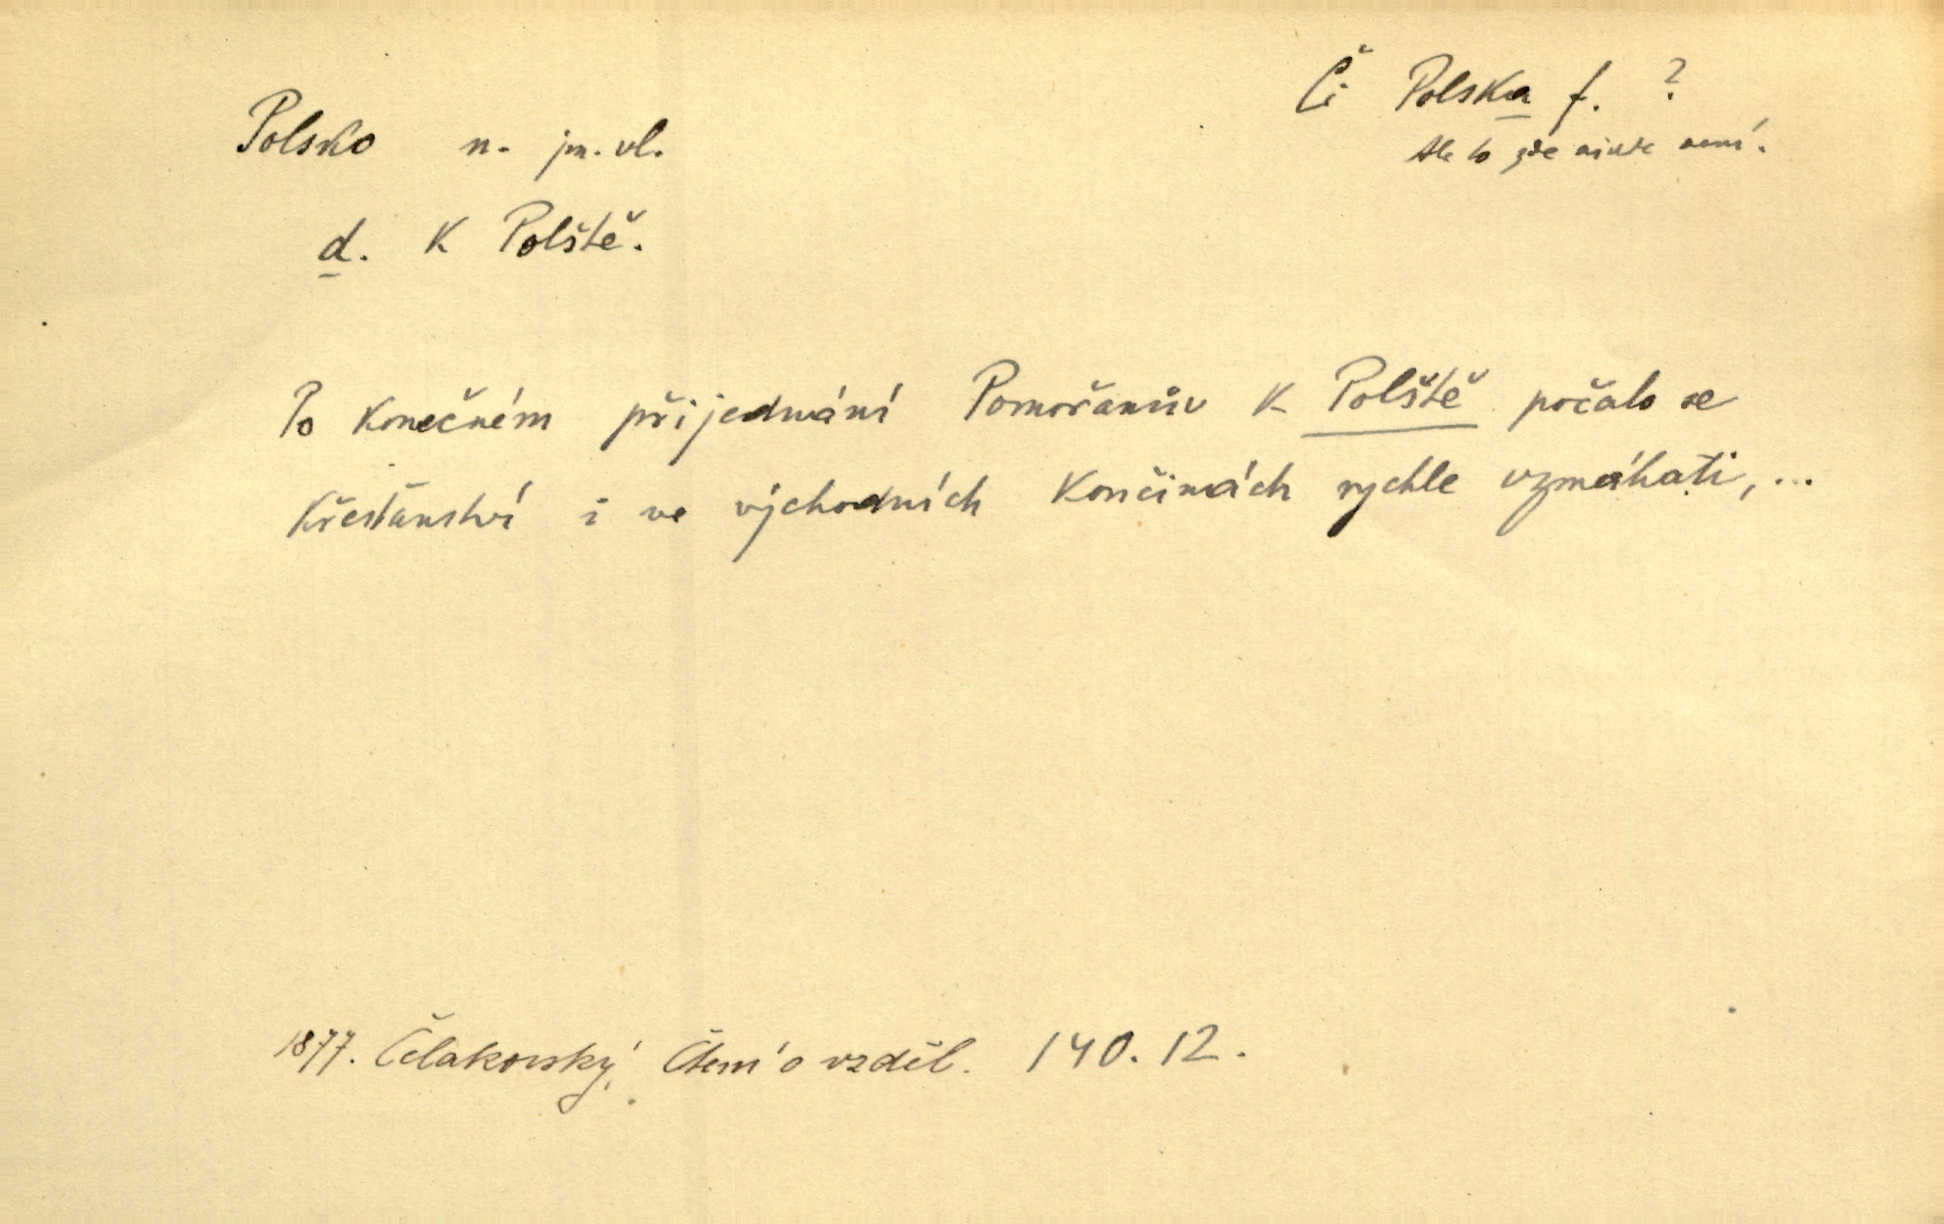 Či Polska f. ?
Ale to zde nikde není.
Polsko n. jm. vl.
d. K Polště.
Po konečném přijednání Pomořanův k Polště počalo se
křesťanství i ve východních končinách rychle vzmáhati, ...
1877. Čelakovský, Čtení o vzděl. 140. 12.